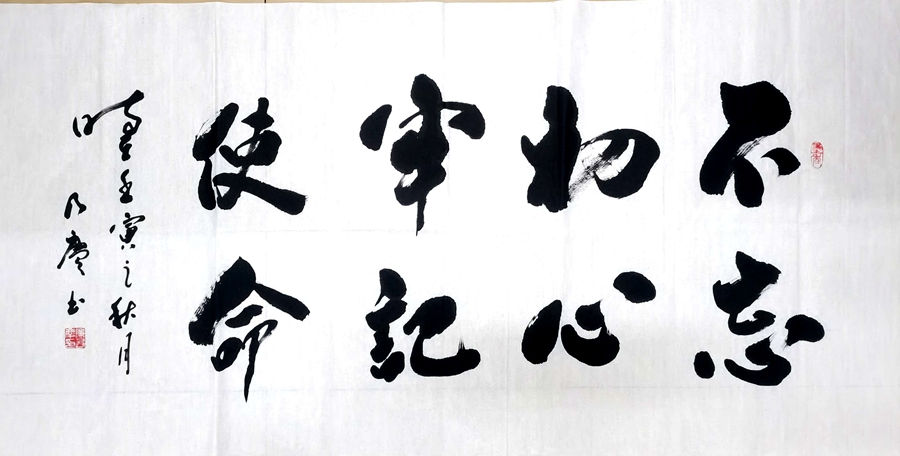 不忘
初心
牢記
使命
時壬寅之秋月
乃慶书